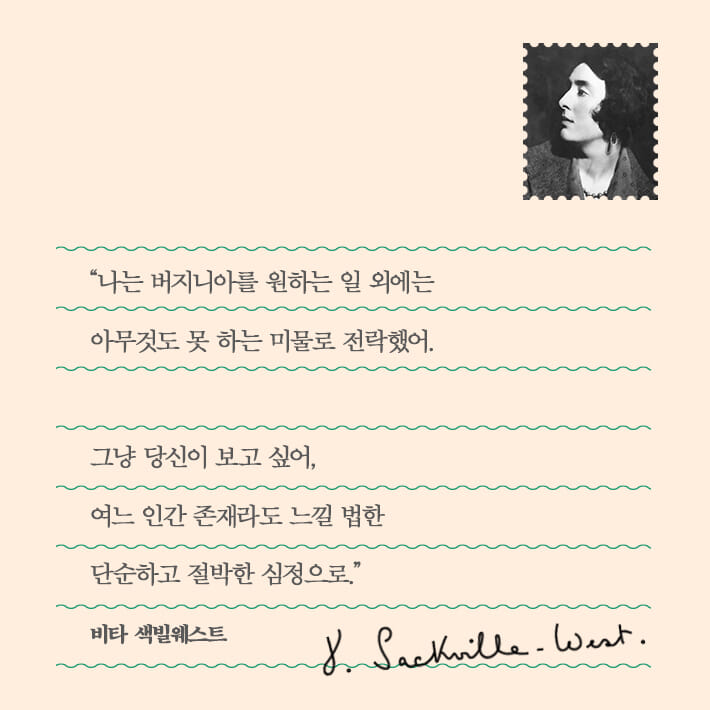 “나는 버지니아를 원하는 일 외에는
아무것도 못 하는 미물로 전락했어.
그냥 당신이 보고 싶어,
여느 인간 존재라도 느낄 법한
단순하고 절박한 심정으로.”
비타 색빌웨스트
V. Sackville-West.